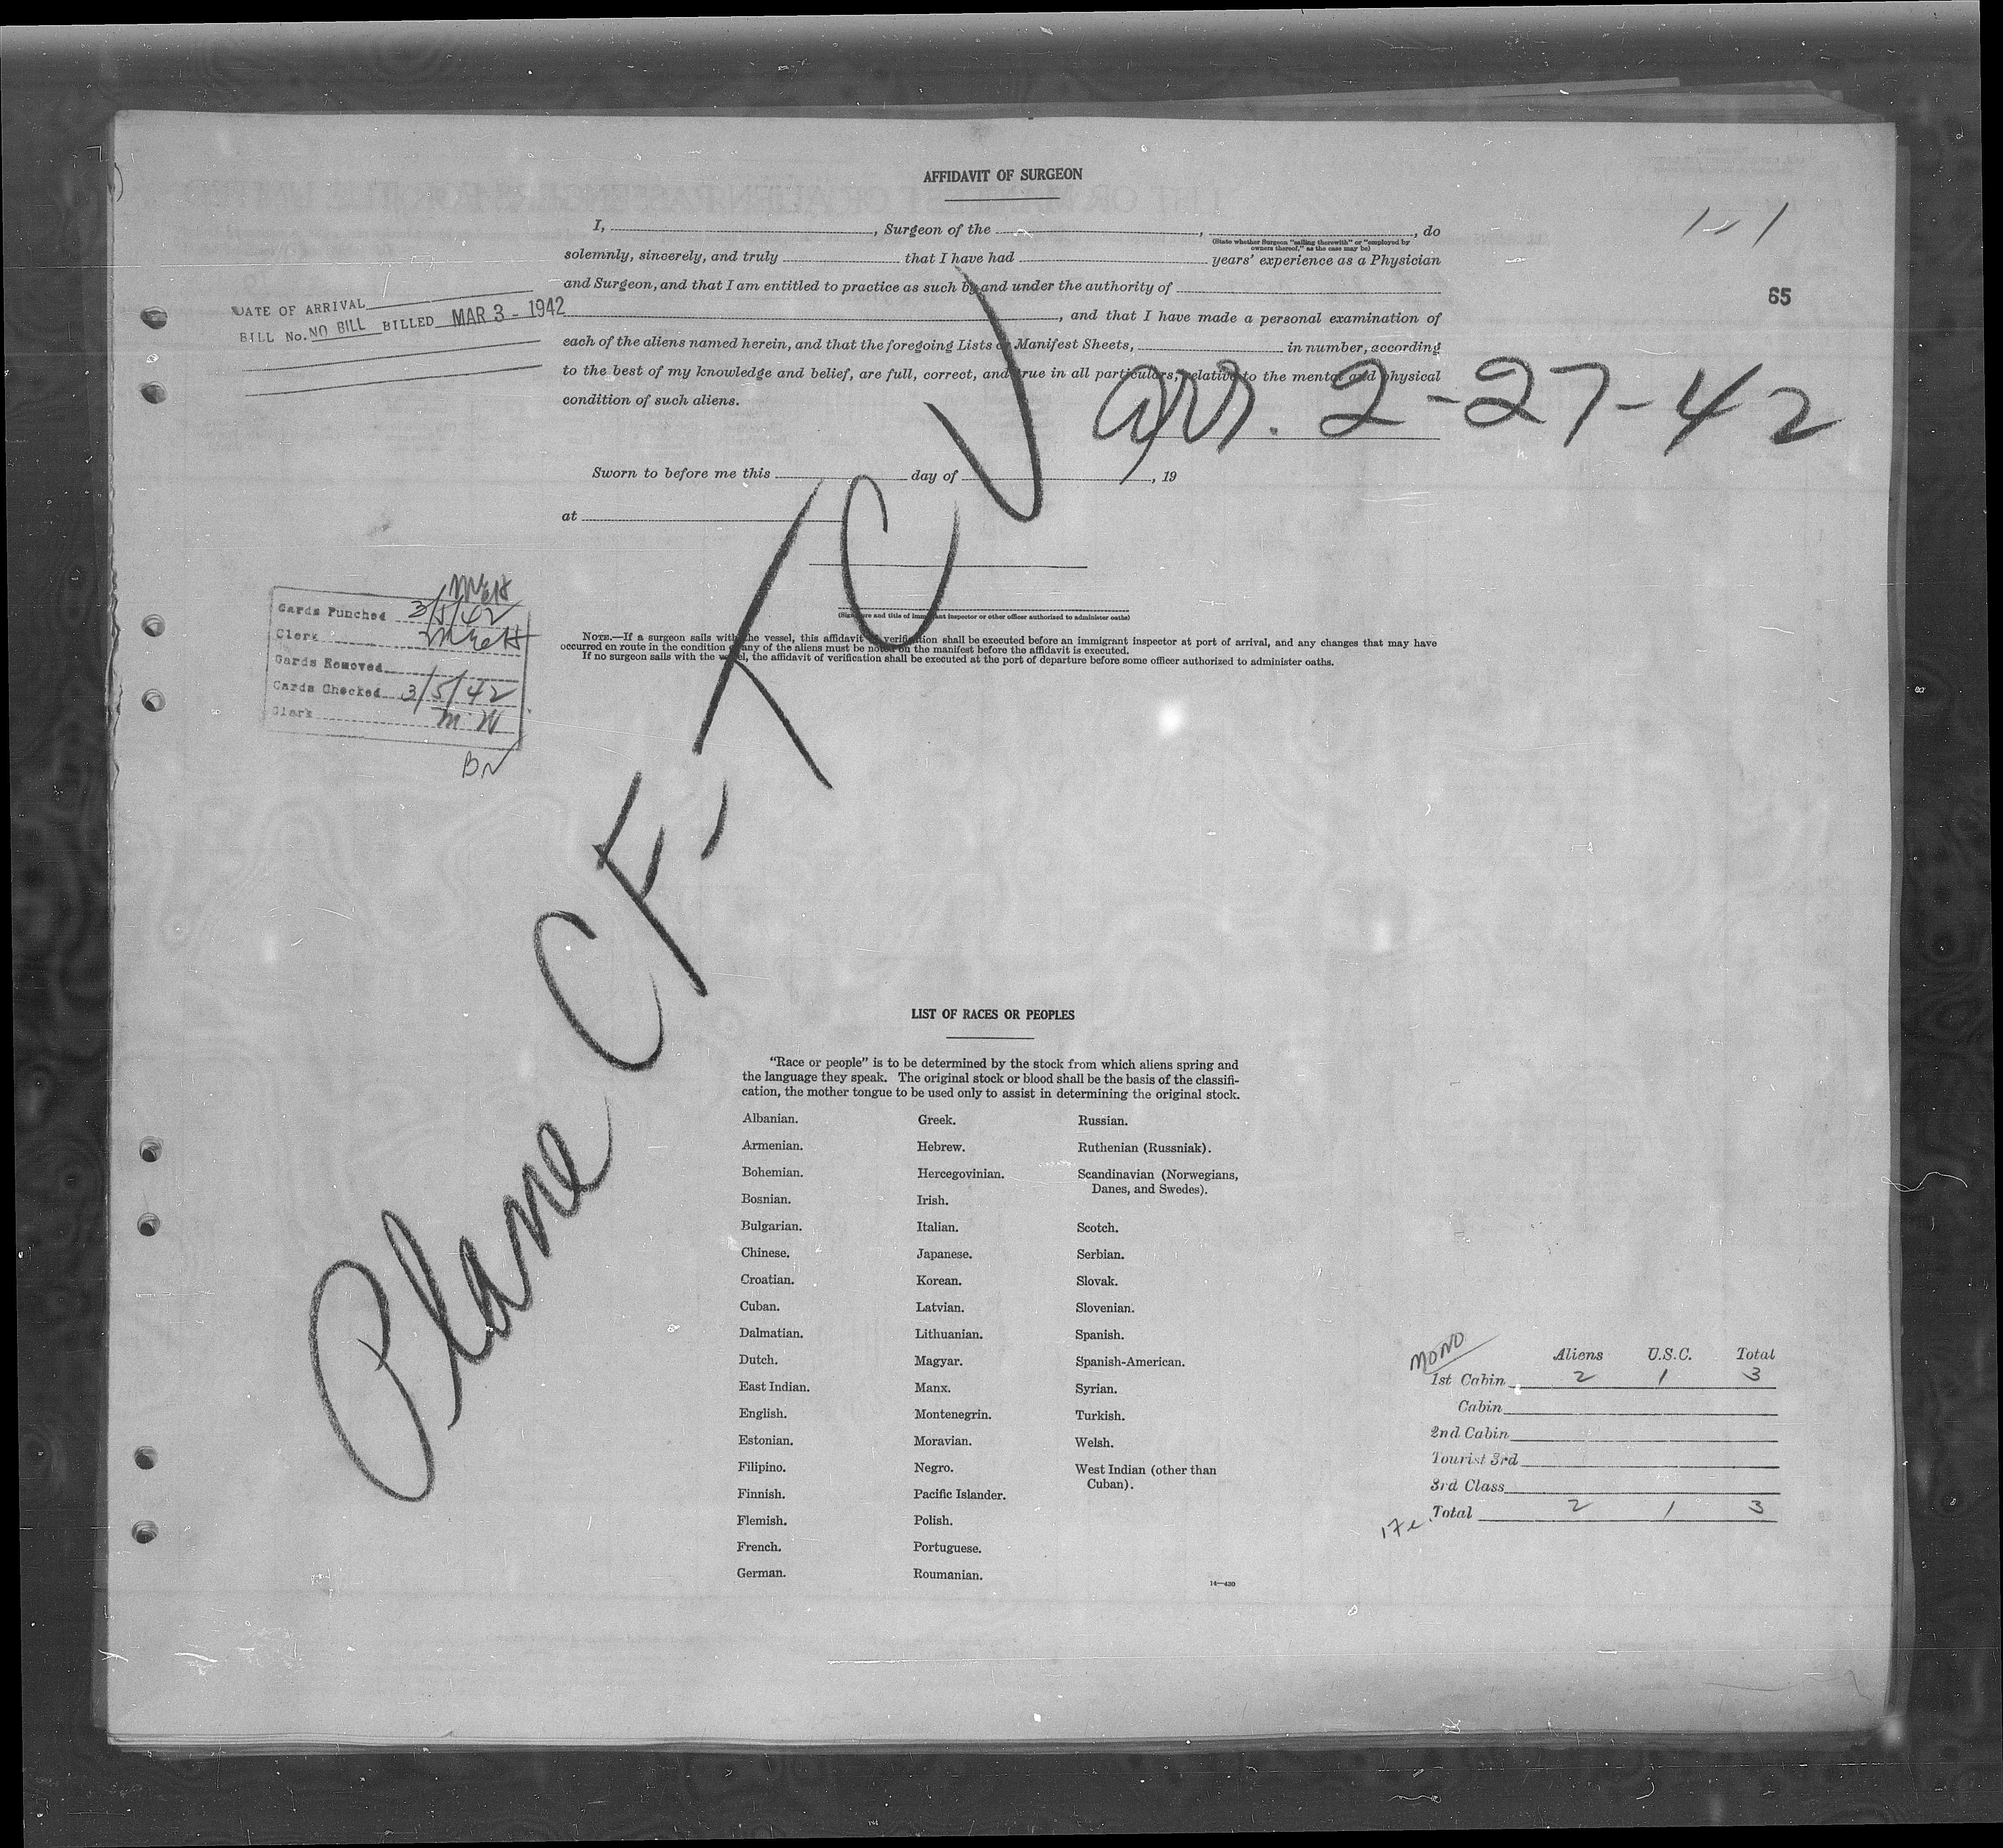 AFFIDAVIT OF SURGEON
I, , Surgeon of the , , do
(State whether Surgeon "sailing therewith" or "employed by
owners thereof," as the case may be)
solemnly, sincerely, and truly that I have had years' experience as a Physician
and Surgeon, and that I am entitled to practice as such by and under the authority of
, and that I have made a personal examination of
each of the aliens named herein, and that the foregoing Lists or Manifest Sheets, in number, according
to the best of my knowledge and belief, are full, correct, and true in all particulars, relative to the mental and physical
condition of such aliens.
Sworn to before me this day of , 19
at
(Signature and title of immigrant inspector or other officer authorized to administer oaths)
NOTE.—If a surgeon sails with the vessel, this affidavit of verification shall be executed before an immigrant inspector at port of arrival, and any changes that may have
occurred en route in the condition of any of the aliens must be noted on the manifest before the affidavit is executed.
If no surgeon sails with the vessel, the affidavit of verification shall be executed at the port of departure before some officer authorized to administer oaths.
DATE OF ARRIVAL
BILL No. NO BILL BILLED MAR 3 - 1942
1 - 1
65
arr. 2-27-42
Plane CF-TCJ
Cards Punched 3/5/42
Clerk
Cards Removed
Cards Checked 3/5/42
Clerk M.W
BN
LIST OF RACES OR PEOPLES
"Race or people" is to be determined by the stock from which aliens spring and
the language they speak. The original stock or blood shall be the basis of the classifi-
cation, the mother tongue to be used only to assist in determining the original stock.
Albanian.
Armenian.
Bohemian.
Bosnian.
Bulgarian.
Chinese.
Croatian.
Cuban.
Dalmatian.
Dutch.
East Indian.
English.
Estonian.
Filipino.
Finnish.
Flemish.
French.
German.
Greek.
Hebrew.
Hercegovinian.
Irish.
Italian.
Japanese.
Korean.
Latvian.
Lithuanian.
Magyar.
Manx.
Montenegrin.
Moravian.
Negro.
Pacific Islander.
Polish.
Portuguese.
Roumanian.
Russian.
Ruthenian (Russniak).
Scandinavian (Norwegians,
Danes, and Swedes).
Scotch.
Serbian.
Slovak.
Slovenian.
Spanish.
Spanish-American.
Syrian.
Turkish.
Welsh.
West Indian (other than
Cuban).
14—430
MONO
Aliens U.S.C. Total
1st Cabin 2 1 3
Cabin
2nd Cabin
Tourist 3rd
3rd Class
Total 2 1 3